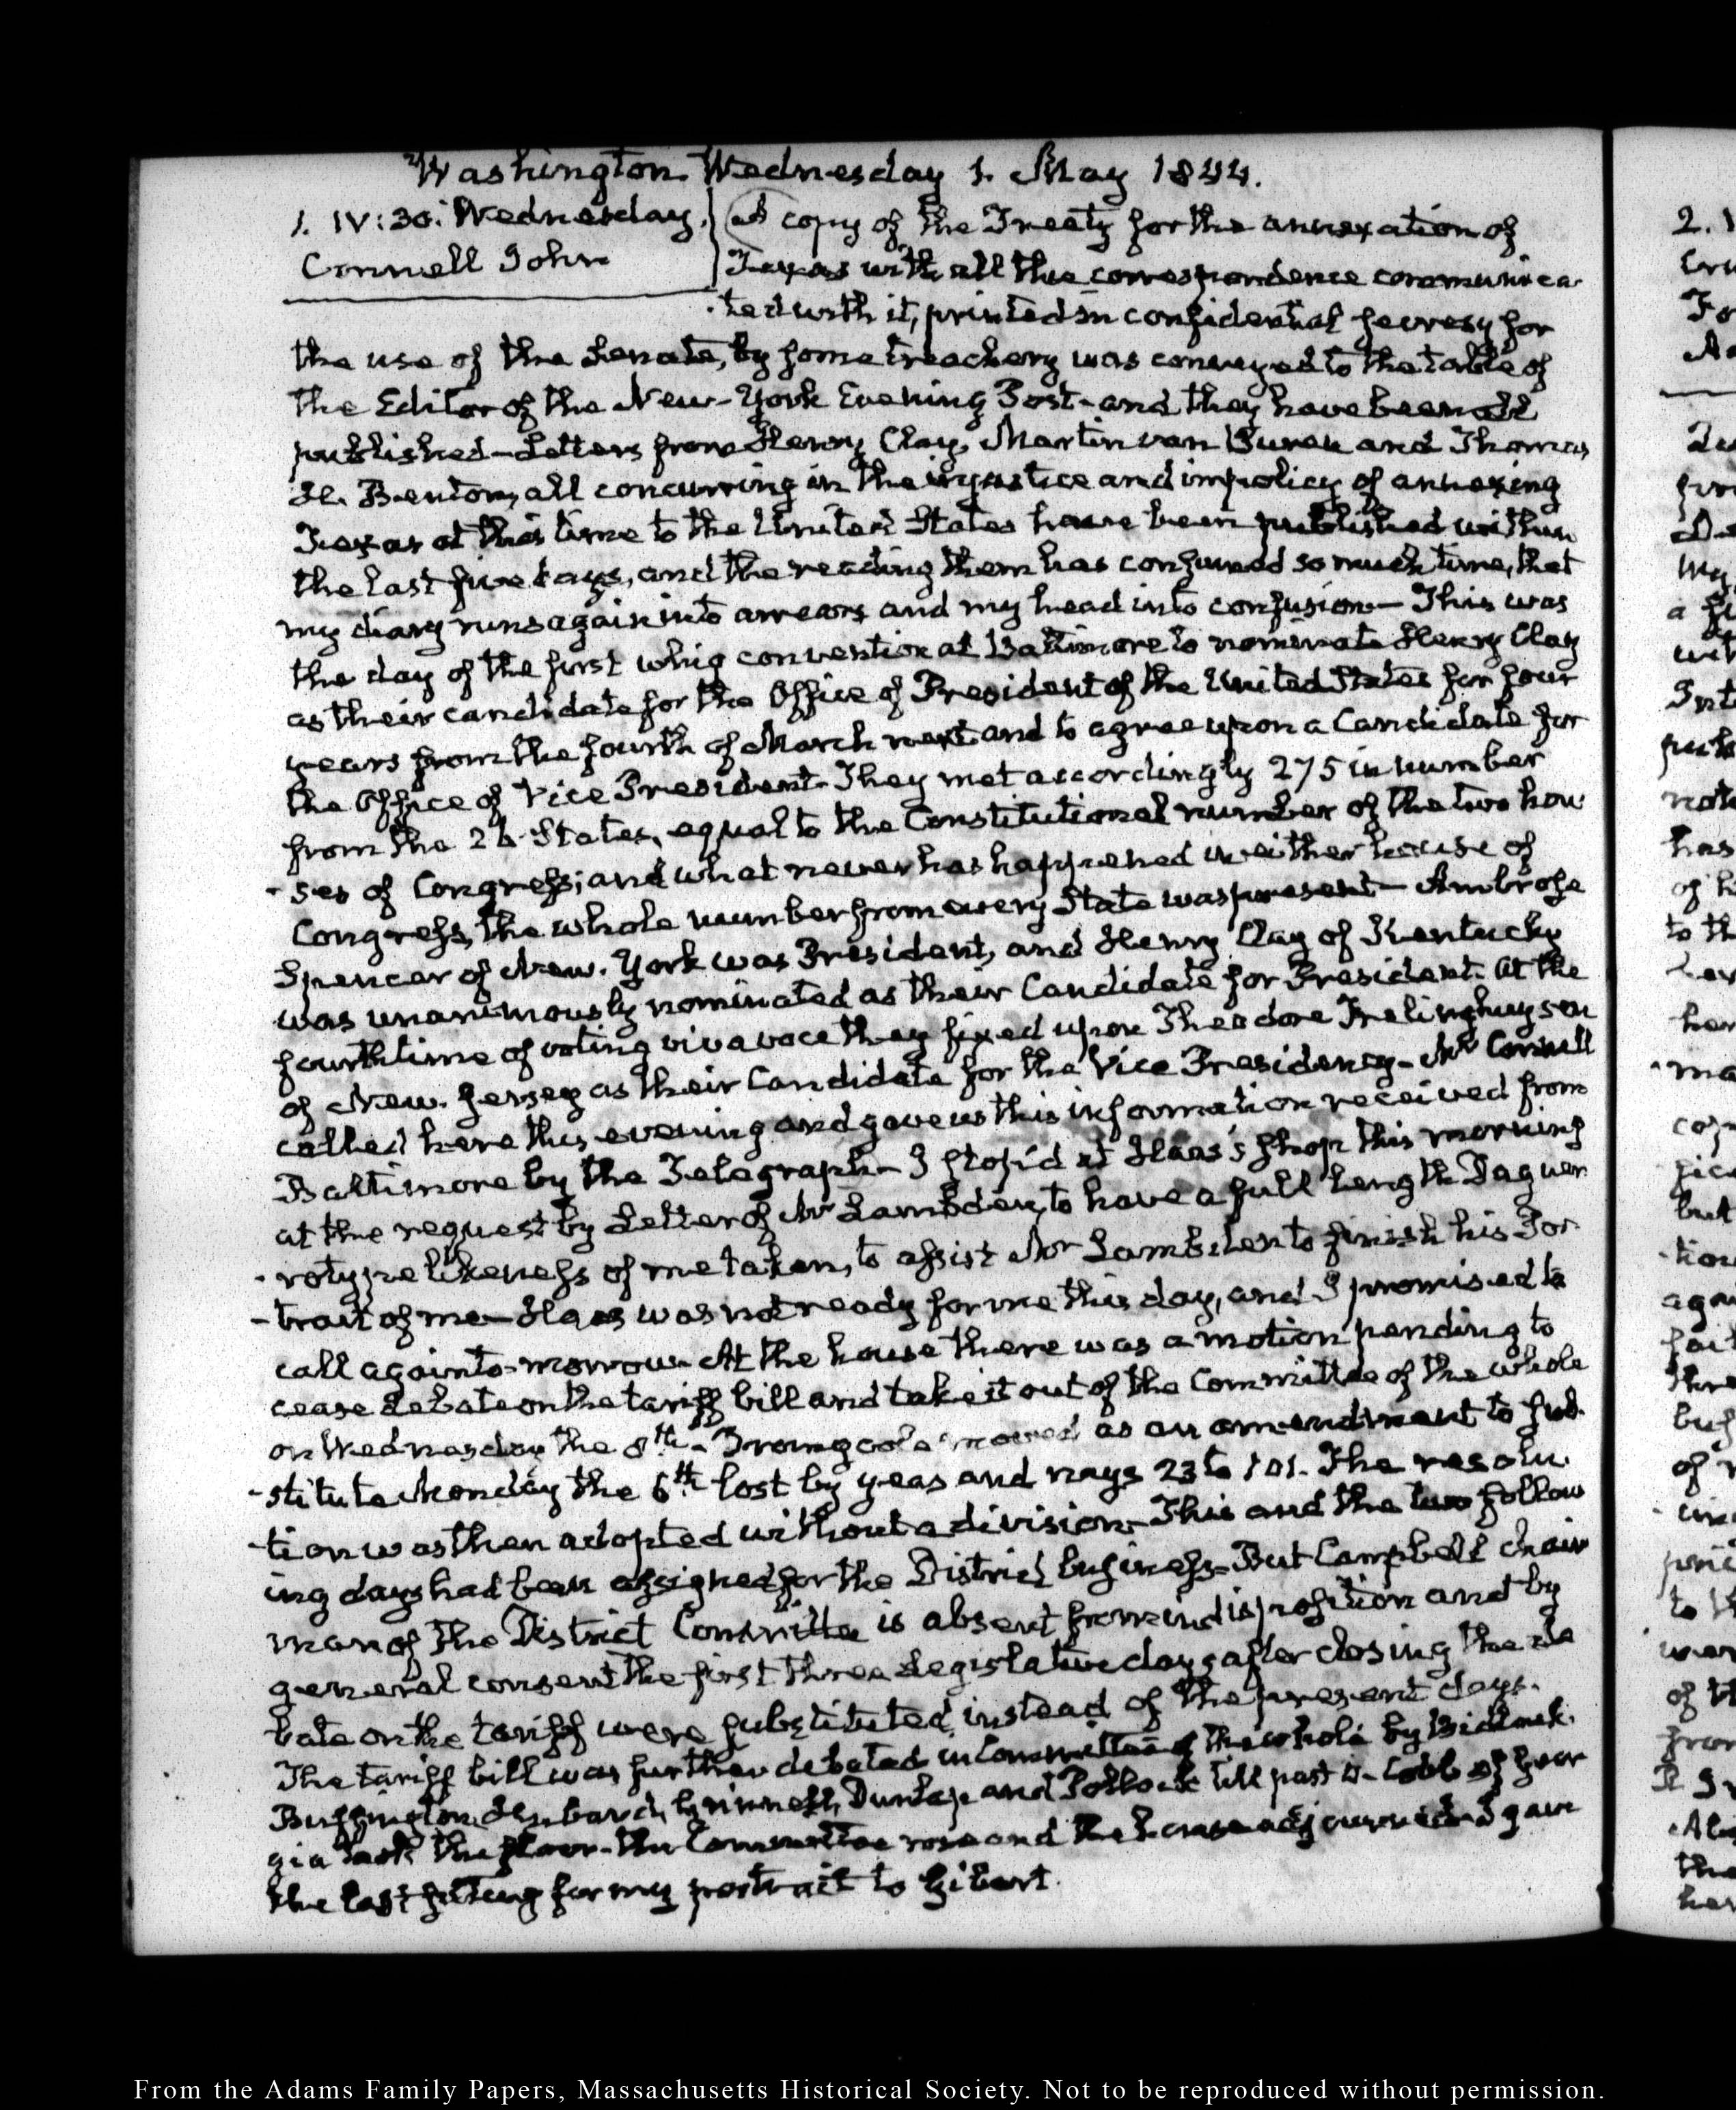 Washington. Wednesday 1. May 1844.
1. IV:30. Wednesday.
Connell John
A copy of the Treaty for the annexation of
Texas with all the correspondence communica-
-ted with it, printed in confidential secresy for
the use of the Senate, by some treachery was conveyed to the table of
the Editor of the New-York Evening Post - and they have been all
published - Letters from Henry Clay, Martin van Buren and Thomas
H. Benton, all concurring in the injustice and impolicy of annexing
Texas at this time to the United States have been published within
the last five days, and the reading them has consumed so much time, that
my diary runs again into arrears and my head into confusion - This was
the day of the first whig convention at Baltimore to nominate Henry Clay
as their candidate for the Office of President of the United States for four
years from the fourth of March next and to agree upon a Candidate for
the Office of Vice President. They met accordingly 275 in number
from the 26 States, equal to the Constitutional number of the two hou
-ses of Congress; and what never has happened in either house of
Congress, the whole number from every State was present - Ambrose
Spencer of New-York was President, and Henry Clay of Kentucky
was unanimously nominated as their Candidate for President. At the
fourth time of voting viva voce they fixed upon Theodore Frelinghuysen
of New-Jersey as their Candidate for the Vice Presidency - Mr Connell
called here this evening and gave us this information received from
Baltimore by the Telegraph - I stop'd at Haas's shop this morning
at the request by Letter of Mr Lambden, to have a full length Daguer
-rotype likeness of me taken, to assist Mr Lambden to finish his Por-
-trait of me - Haas was not ready for me this day, and I promised to
call again to-morrow. At the house there was a motion pending to
cease debate on the tariff bill and take it out of the Committee of the whole
on Wednesday the 8th - Dromgoole moved as an amendment to sub-
-stitute Monday the 6th lost by yeas and nays 23 to 101. The resolu-
-tion was then adopted without a division - This and the two follow
ing days had been assigned for the District business - But Campbell chair
man of the District Committee is absent from indisposition and by
general consent the first three Legislative days after closing the de
bate on the tariff were substituted, instead of the present days.
The tariff bill was further debated in Committee of the whole by Bidlack.
Buffington, Grinnell, Dunlap and Pollock till past - Cobb of Geor
gia took the floor - the Committee rose and the house adjourned - I gave
the last sitting for my portrait to Gibert.
2.
From the Adams Family Papers, Massachusetts Historical Society. Not to be reproduced without permission.